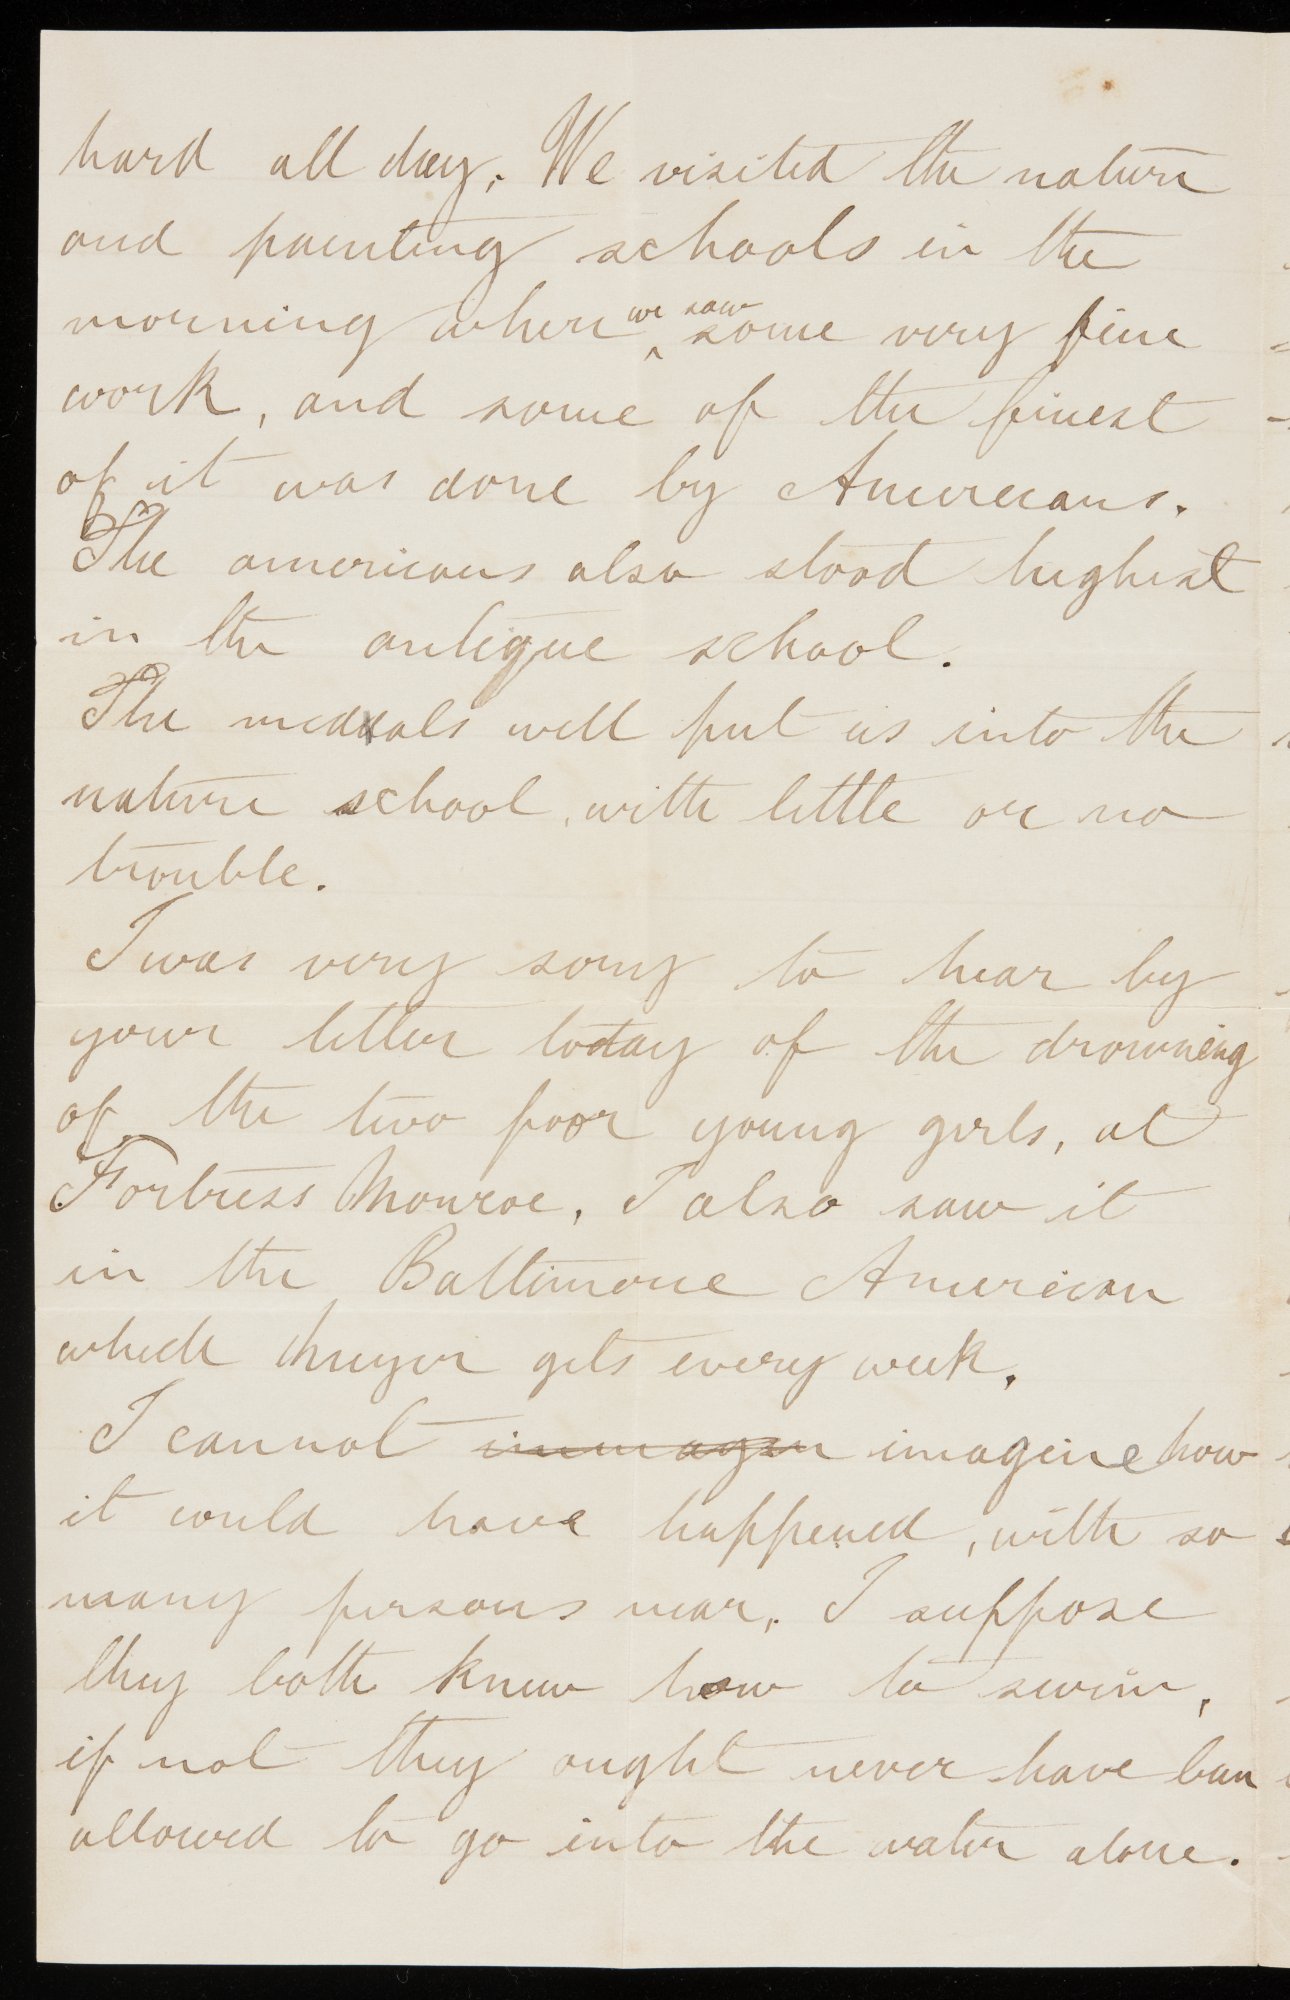 hard all day. We visited the nature
and painting schools in the
morning when we saw some very fine
work, and some of the finest
of it was done by Americans.
The americans also stood highest
in the antique school.
The medals will put us into the
nature school, with little or no
trouble.
I was very sorry to hear by
your letter today of the drowning
of the two poor young girls, at
Fortress Monroe, I also saw it
in the Baltimore American
which Meyer gets every week.
I cannot immagen imagine how
it could have happened, with so
many persons near. I suppose
they both knew how to swim,
if not they ought never have ben
allowed to go into the water alone.